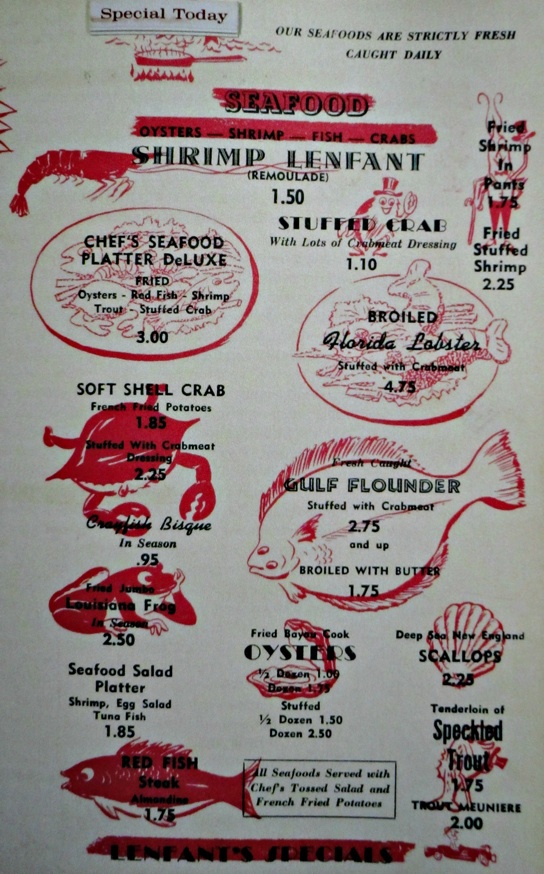 Special Today
OUR SEAFOODS ARE STRICTLY FRESH
CAUGHT DAILY
SEAFOOD
OYSTERS — SHRIMP — FISH — CRABS
SHRIMP LENFANT
(REMOULADE)
1.50
Fried
Shrimp
In
Pants
1.75
STUFFED CRAB
With Lots of Crabmeat Dressing
1.10
Fried
Stuffed
Shrimp
2.25
CHEF'S SEAFOOD
PLATTER DeLUXE
FRIED
Oysters - Red Fish - Shrimp
Trout - Stuffed Crab
3.00
BROILED
Florida Lobster
Stuffed with Crabmeat
4.75
SOFT SHELL CRAB
French Fried Potatoes
1.85
Stuffed With Crabmeat
Dressing
2.25
Fresh Caught
GULF FLOUNDER
Stuffed with Crabmeat
2.75
and up
BROILED WITH BUTTER
1.75
Crayfish Bisque
In Season
.95
Fried Jumbo
Louisiana Frog
In Season
2.50
Fried Bayou Cook
OYSTERS
½ Dozen 1.00
Dozen 1.75
Stuffed
½ Dozen 1.50
Dozen 2.50
Deep Sea New England
SCALLOPS
2.25
Seafood Salad
Platter
Shrimp, Egg Salad
Tuna Fish
1.85
Tenderloin of
Speckled
Trout
1.75
TROUT MEUNIERE
2.00
RED FISH
Steak
Almondine
1.75
All Seafoods Served with
Chef's Tossed Salad and
French Fried Potatoes
LENFANT'S SPECIALS